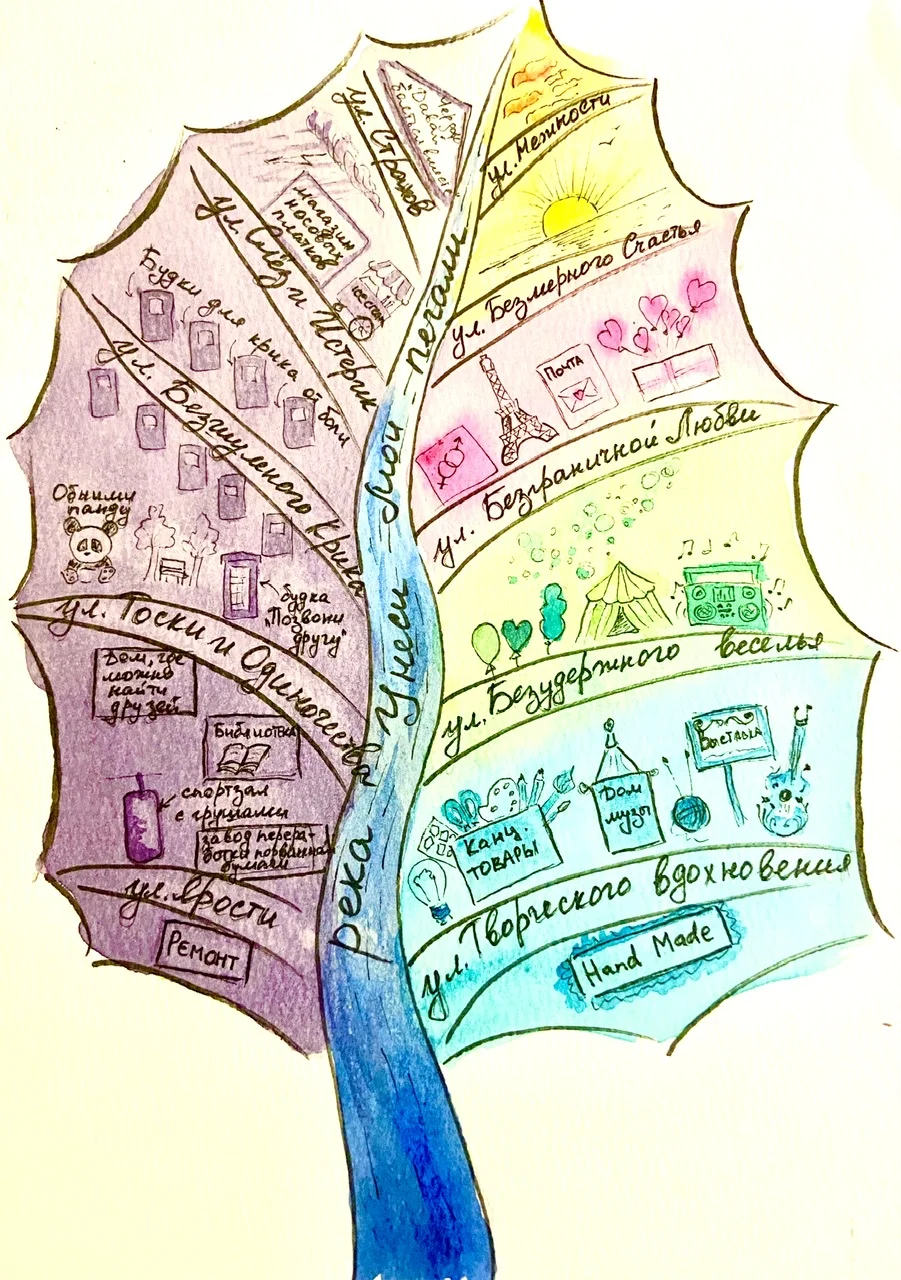 ул. Страхов
Давай
бояться вместе
магазин
носовых
платков
ул. Слёз и Истерик
Будки для крика от боли
ул. Безумного Крика
Обними
панду
будка
"Позвони
другу"
ул. Тоски и Одиночества
Дом, где
можно
найти
друзей
Библиотека
спортзал
с грушами
завод перера-
ботки порванной
бумаги
ул. Ярости
Ремонт
река Унеси Мои печали
ул. Нежности
ул. Безмерного Счастья
Почта
ул. Безграничной Любви
ул. Безудержного веселья
Канц.
товары
Дом
музы
Выставка
ул. Творческого вдохновения
Hand Made